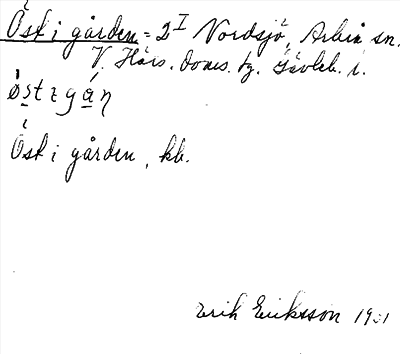 Öst i gården = 2 I Nordsjö, Arbrå sn.
V. Häls. doms. tg. Gävleb. l.
östigán
Öst i gården, kb.
Erik Eriksson 1931